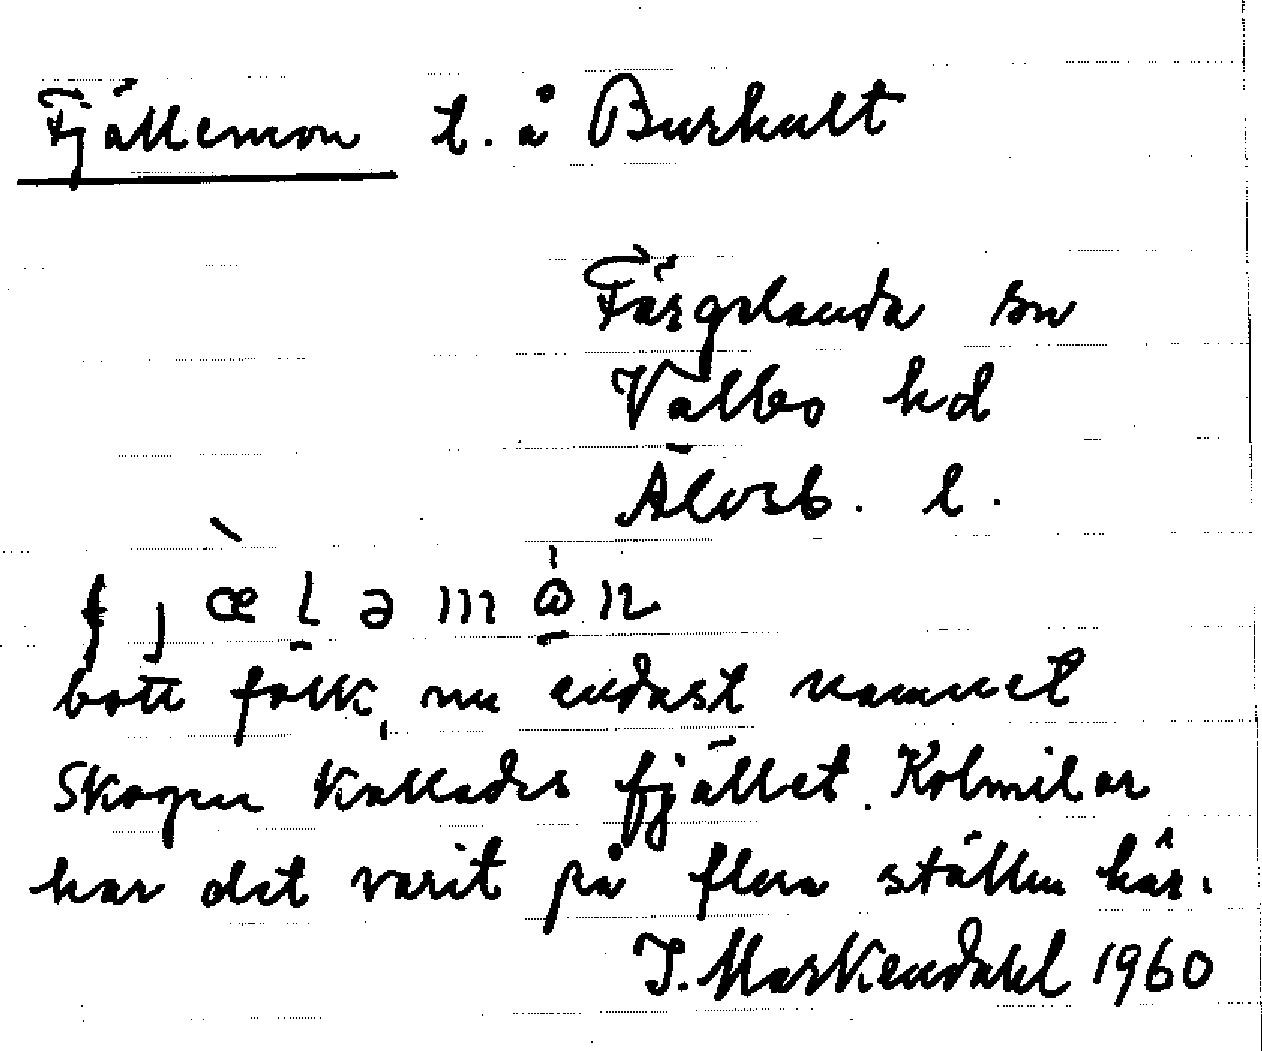 Fjällemon t. å Burhult
Färgelanda sn
Valbo hd
Älvsb. l.
fjæ̀ləmån
bott folk, nu endast namnet
Skogen kallades fjället. Kolmilor
har det varit på flera ställen här.
J. Markendahl 1960